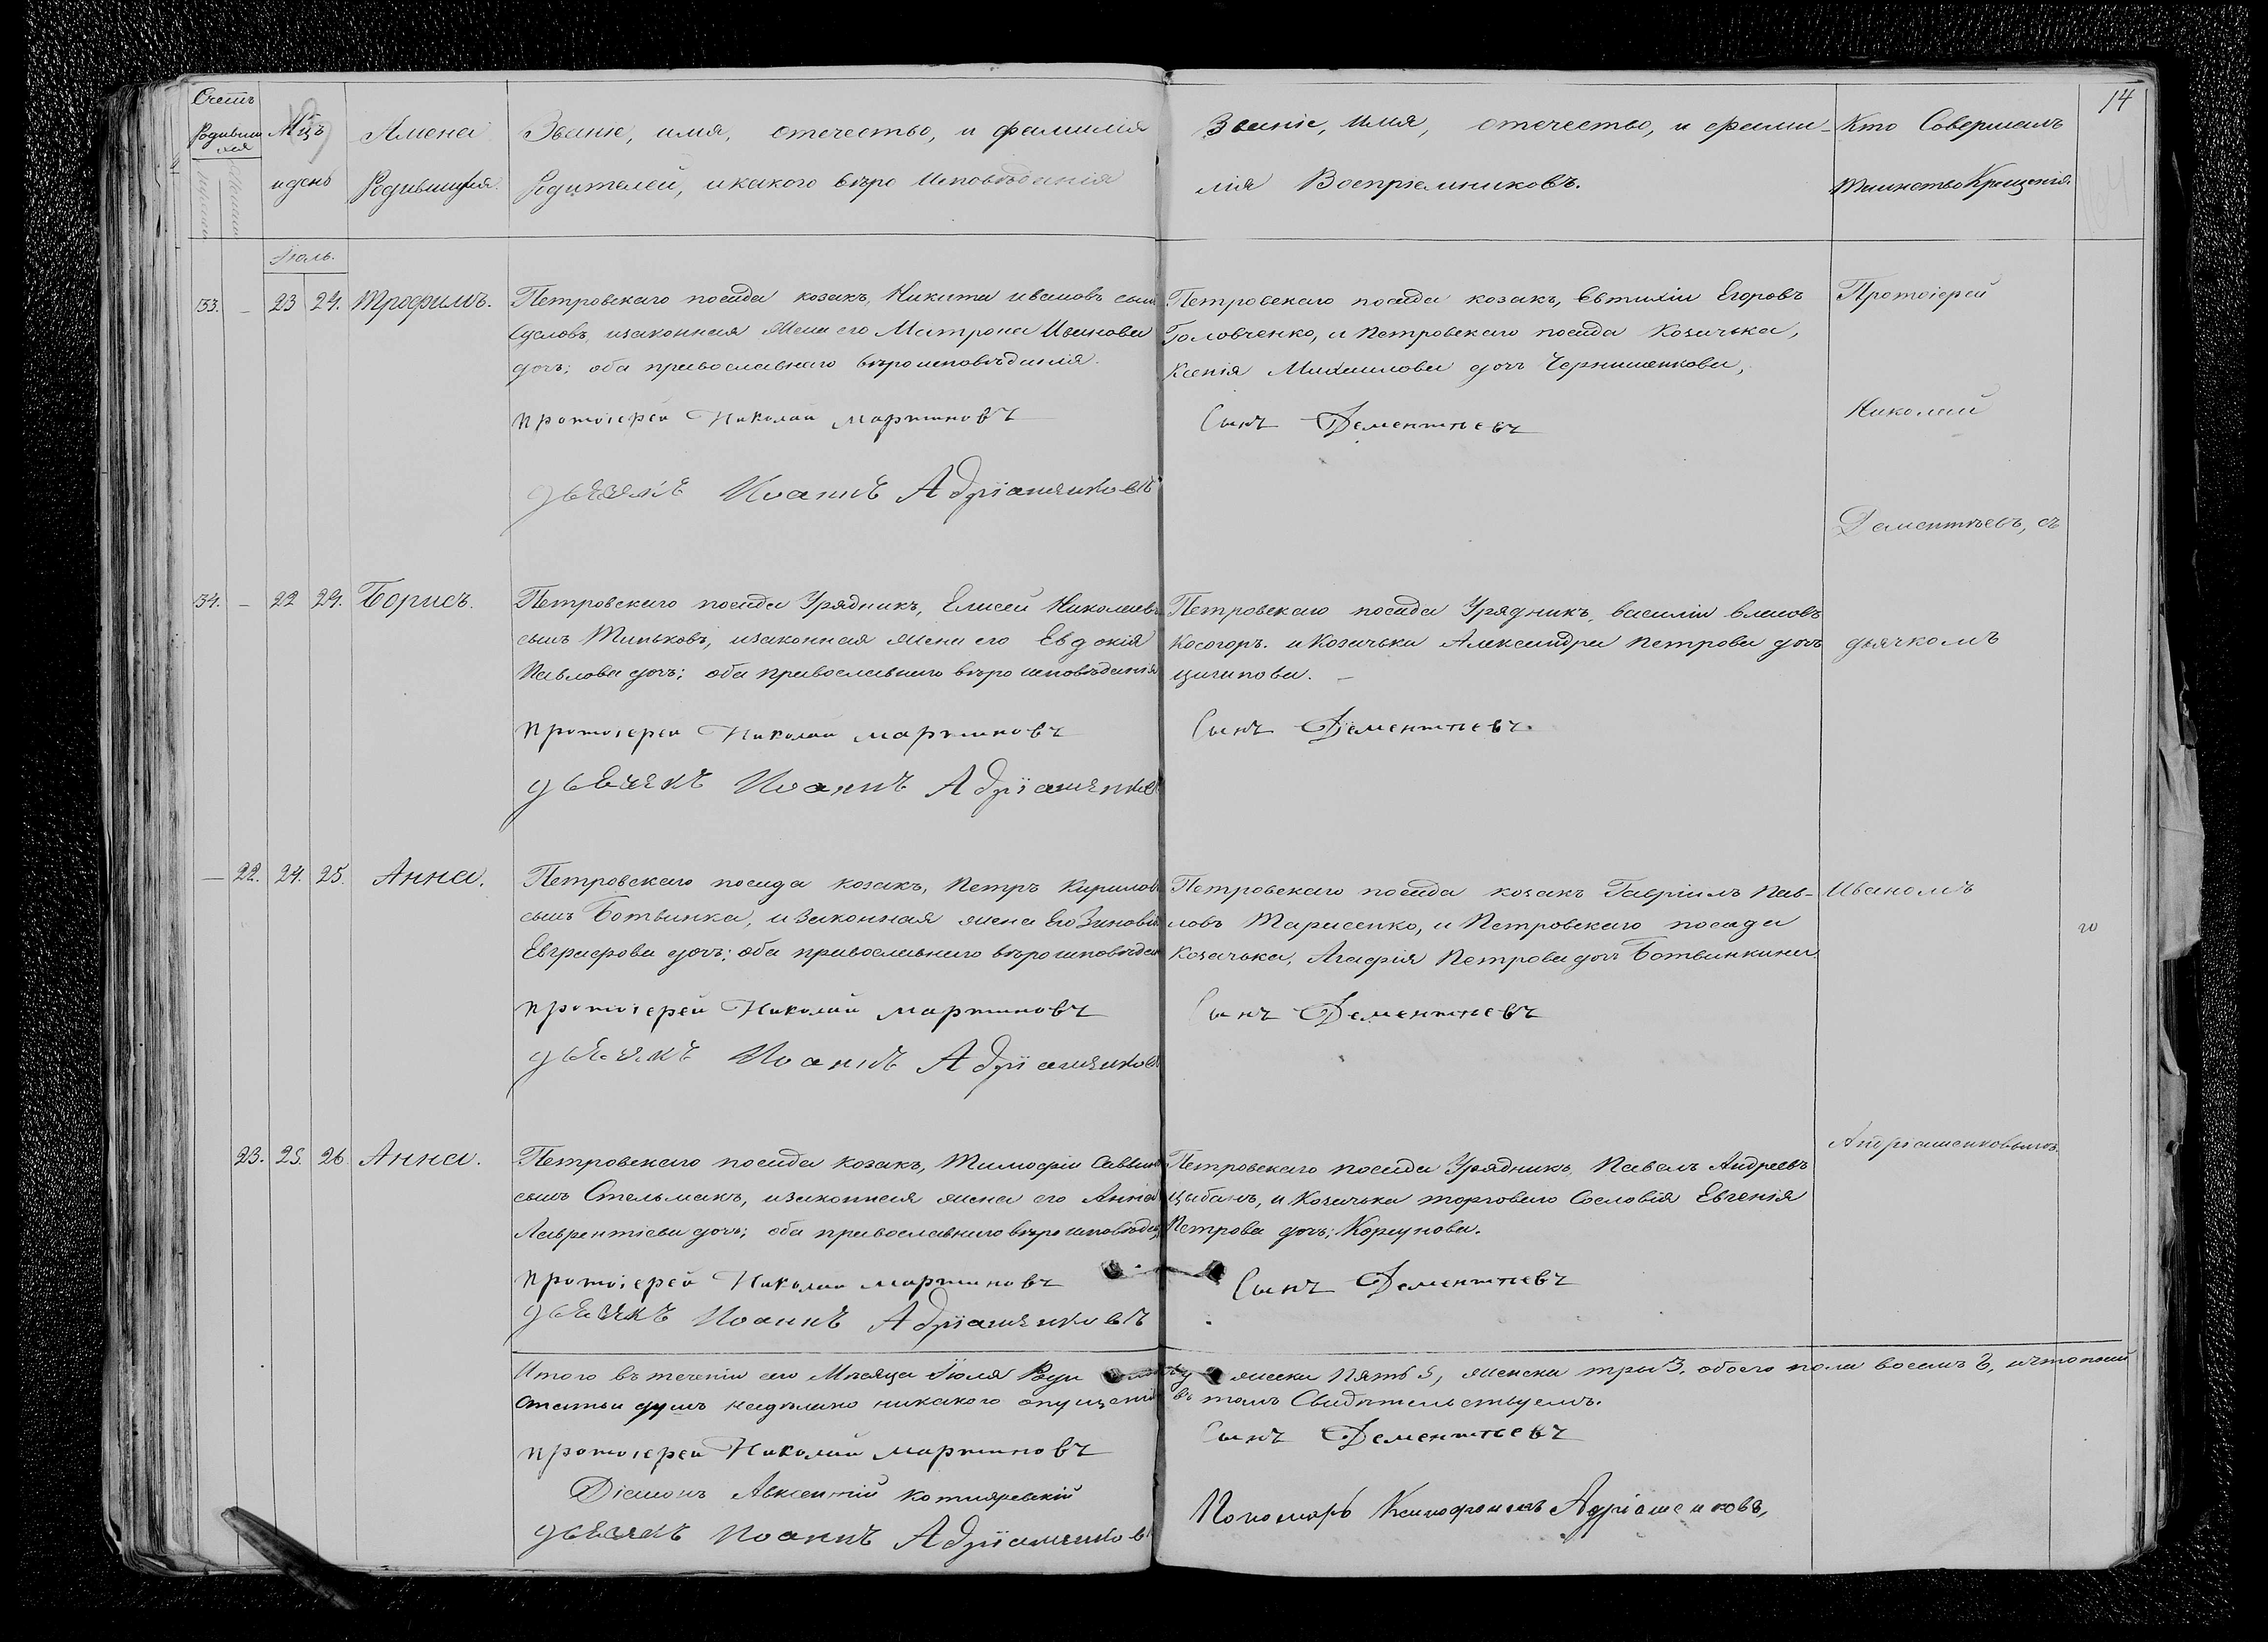 14
Счетъ
Родивши
хся
Мцъ
и день
Имена
Родившихся.
Званіе, имя, отечество, и фамилія
Родителей, и какого вѣроисповѣданія
Званіе, имя, отечество, и фами-
лія Воспріемниковъ.
Кто Совершалъ
таинство Крещенія.
Іюль.
133. - 23 24. Трофимъ.
Петровскаго посада козакъ, Никита ивановъ сынъ
Сусловъ, изаконная жена его Матрона Иванова
дочь; оба православнаго вѣроисповѣданія.
протоіерей Николай мартиновъ
дьячекъ Иоаннъ Адріашенковъ
Петровскаго посада козакъ, Евтихій Егоровъ
Головченко, и Петровскаго посада Козачька,
Ксенія Михаилова дочь Чернишенкова,
Сынъ Дементьевъ
Протоіерей
Николай
Дементьевъ, съ
34. - 22 24. Борисъ.
Петровскаго посада Урядникъ, Елисей Николаевъ
сынъ Тиньковъ, изаконная жена его Евдокія
Павлова дочь; оба православнаго вѣроисповѣданія
протоіерей Николай мартиновъ
дьячекъ Иоаннъ Адріашенков
Петровскаго посада Урядникъ, василій власовъ
Косогоръ. и Козачька Александра Петрова дочь
цыганова. -
Сынъ Дементьевъ.
дьячкомъ
- 22. 24. 25. Анна.
Петровскаго посада козакъ, Петръ Кириловъ
сынъ Ботвинка, изаконная жена Его Зиновія
Евграфова дочь; оба православнаго вѣроисповѣдан
протоіерей Николай мартиновъ
дьячекъ Иоаннъ Адріашенков
Петровскаго посада козакъ Гавріилъ Пав-
ловъ Тарасенко, и Петровскаго посада
Козачька, Агафія Петрова дочь Ботвинкина
Сынъ Дементьевъ
Иваномъ
23. 25. 26 Анна.
Петровскаго посада козакъ, Тимофій Саввинъ
сынъ Стельмахъ, изаконная жена его Анна
Лаврентіева дочь; оба православнаго вѣроисповѣдан
протоіерей Николай мартиновъ
дьячекъ Иоаннъ Адріашенковъ
Петровскаго посада Урядникъ, Павелъ Андреевъ
Цыбань, и Козачька торговаго Сословія Евгенія
Петрова дочь; Корсунова.
Сынъ Дементьевъ
Адріашенковымъ.
Итого въ теченіи сего Мѣсяца Іюля Роди мужеска Пять 5, женска три 3, обоего пола восемь 8, ичто
Статьи душъ нездѣлано никакого опущенія въ томъ Свидѣтельствуемъ.
протоіерей Николай мартиновъ
Сынъ Дементьевъ
Діаконъ Авксентій Котляревскій
дьячекъ Иоаннъ Адріашенков
Пономарь Ксенофонтъ Адріашенковъ,